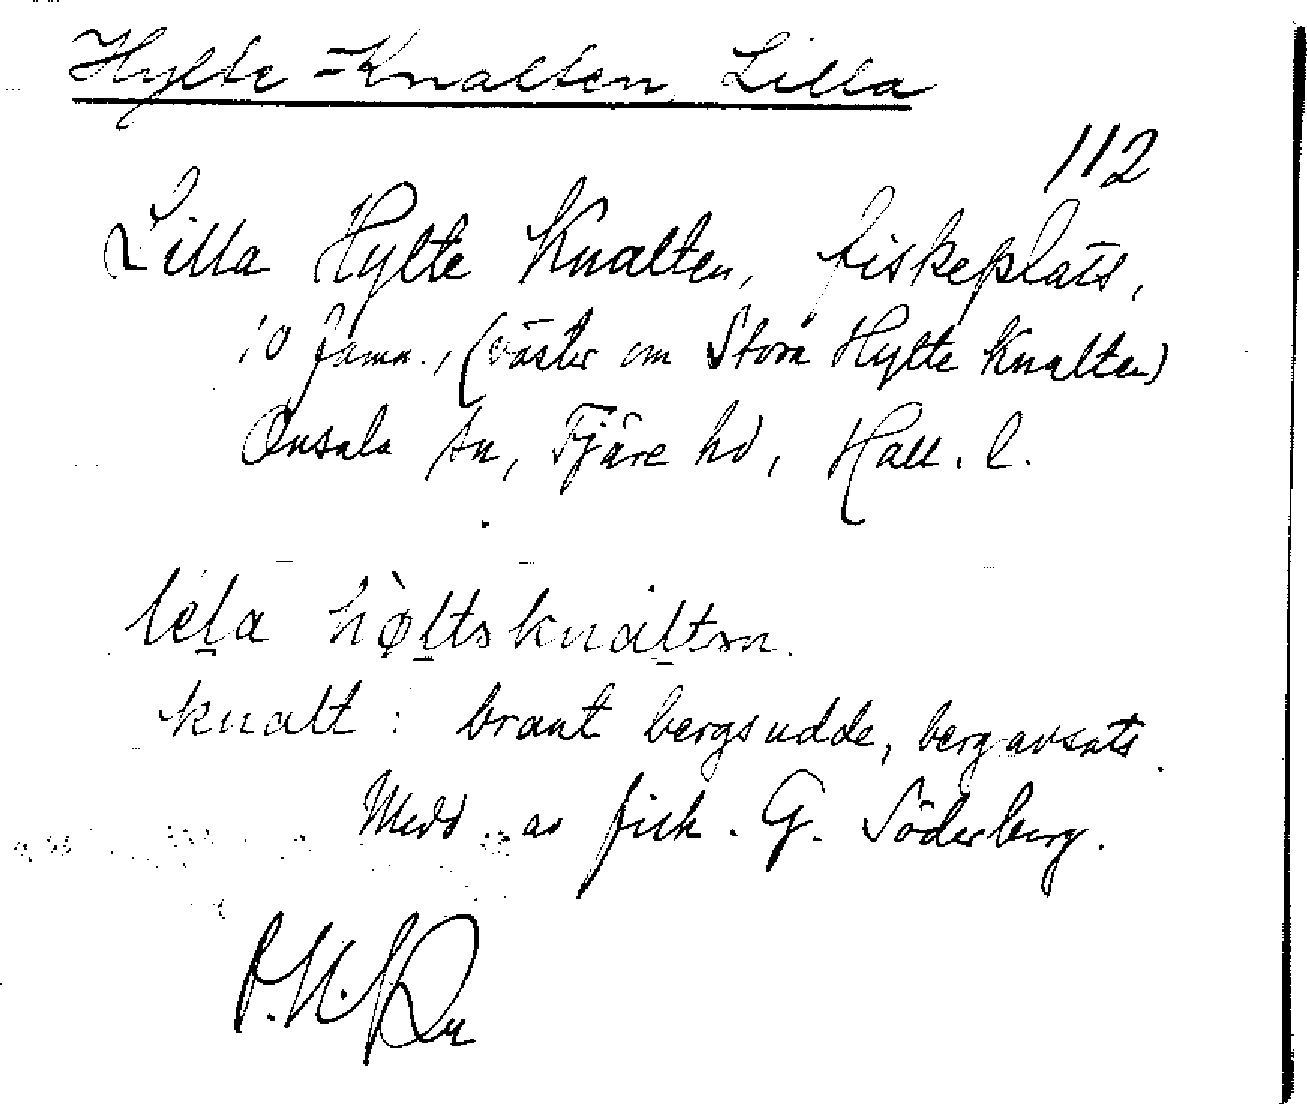 Hylte-Knalten, Lilla
112
Lilla Hylte Knalten, fiskeplats,
10 famn., (väster om Stora Hylte Knalten)
Onsala sn, Fjäre hd, Hall. l.
lela hòltsknaltsn.
knalt: brant bergsudde, bergavsats.
Medd. av fisk. G. Söderberg.